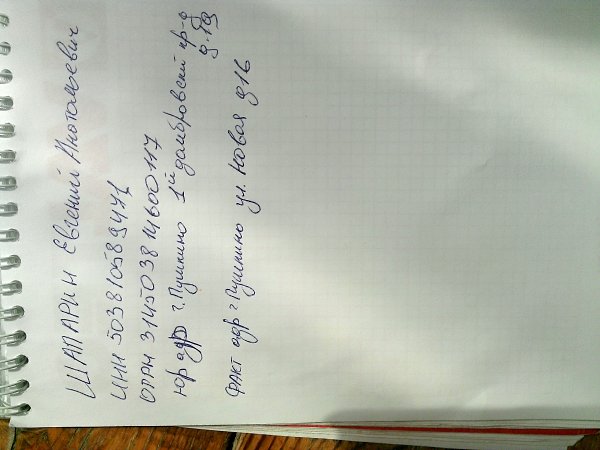 ШАПАРИН Евгений Анотальевич
ИНН 503810589471
ОГРН 314503814600117
Юр адр г. Пушкино 1й домбровский пр-д
д. 19
ФАКТ адр г Пушкино ул. Новая д 16